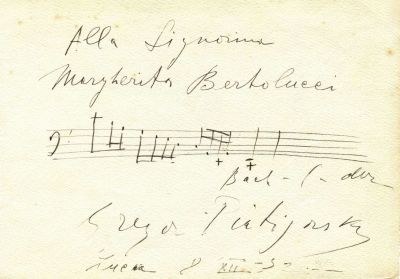 Alla Signorina
Margherita Bertolucci
Bach - C - dur
Gregor Piatigorsky
8 XII